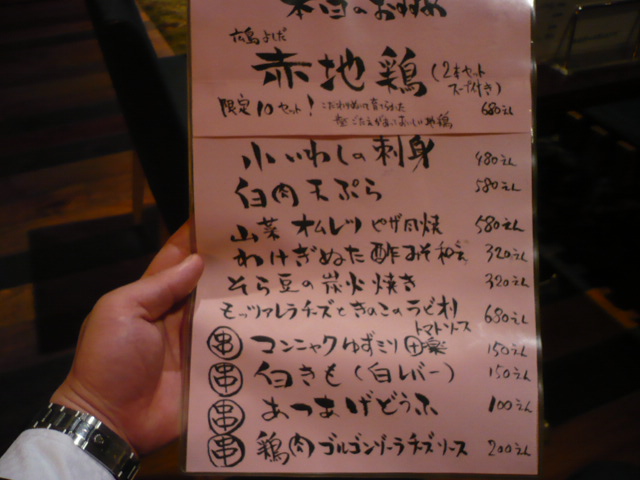 本日のおすすめ
広島よしだ
赤地鶏(2本セット
スープ付き)
限定10セット! こだわりぬいて育てられた 680えん
歯ごたえがあっておいしい地鶏
小いわしの刺身 480えん
白肉天ぷら 580えん
山菜オムレツ ピザ風焼 580えん
わけぎぬた酢みそ和え 320えん
そら豆の炭火焼き 320えん
モッツァレラチーズときのこのラビオリ 680えん
トマトソース
串 コンニャクゆずミソ田楽 150えん
串 白きも(白レバー) 150えん
串 あつあげどうふ 100えん
串 鶏肉ゴルゴンゾーラチーズソース 200えん